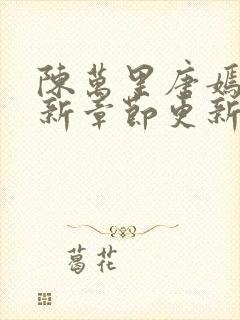 陳萬里唐嫣
新章節更新
葛花